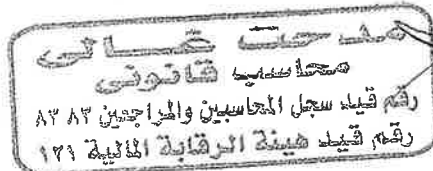 مدحت غالى
محاسب قانونى
رقم قيد سجل المحاسبين والمراجعين ٨٣ ٨٣
رقم قيد هيئة الرقابة المالية ١٢١